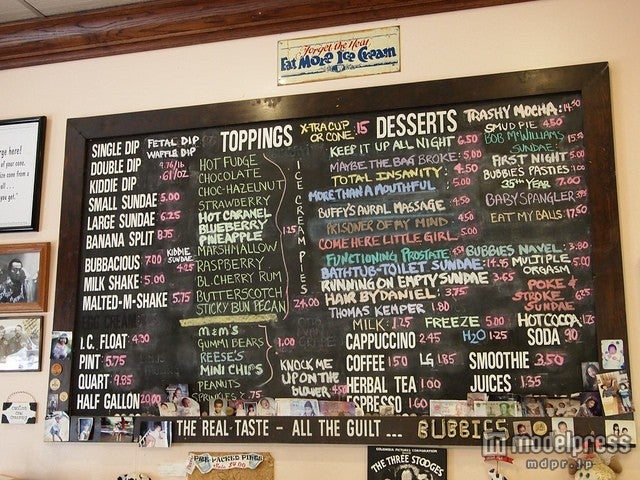 Forget the Heat
Eat More Ice Cream
TOPPINGS
X-TRA CUP
OR CONE: .15
DESSERTS
SINGLE DIP
DOUBLE DIP
KIDDIE DIP
SMALL SUNDAE 5.00
LARGE SUNDAE 6.25
BANANA SPLIT 8.75
BUBBACIOUS 7.00
KIDDIE
SUNDAE
4.25
MILK SHAKE 5.00
MALTED-M-SHAKE 5.75
I.C. FLOAT 4.30
PINT 5.75
QUART 9.95
HALF GALLON 20.00
FETAL DIP
WAFFLE DIP
9.76/lb
.61/oz
HOT FUDGE
CHOCOLATE
CHOC-HAZELNUT
STRAWBERRY
HOT CARAMEL
BLUEBERRY
PINEAPPLE
MARSHMALLOW
RASPBERRY
BL. CHERRY RUM
BUTTERSCOTCH
STICKY BUN PECAN
1.25
M&M'S
GUMMI BEARS
REESE'S
MINI CHIPS
PEANUTS
SPRINKLES .75
1.00
ICE CREAM PIES
24.00
KNOCK ME
UP ON THE
BLOWER
KEEP IT UP ALL NIGHT 6.50
MAYBE THE BAG BROKE: 5.00
TOTAL INSANITY: 4.50
MORE THAN A MOUTHFUL: 5.00
BUFFY'S AURAL MASSAGE 4.50
PRISONER OF MY MIND 4.50
COME HERE LITTLE GIRL 5.00
FUNCTIONING PROSTATE
BATHTUB-TOILET SUNDAE: 14.95
RUNNING ON EMPTY SUNDAE 3.65
HAIR BY DANIEL: 3.75
THOMAS KEMPER 1.80
TRASHY MOCHA: 14.50
SMUD PIE 4.50
BOB McWILLIAMS
SUNDAE
FIRST NIGHT 5.00
BUBBIES PASTIES 1.00
25TH YEAR 7.00
BABY SPANGLER
EAT MY BALLS: 17.50
BUBBIES NAVEL: 3.80
MULTIPLE
ORGASM 5.00
POKE &
STROKE
SUNDAE 6.25
MILK: 1.75
FREEZE 5.00
HOT COCOA 1.75
CAPPUCCINO 2.45
H2O 1.25
SODA .90
COFFEE 1.50
LG 1.85
SMOOTHIE 3.50
HERBAL TEA 1.00
JUICES 1.35
ESPRESSO 1.60
THE REAL TASTE - ALL THE GUILT ... BUBBIES
PRE-PACKED PINTS
COLUMBIA PICTURES CORPORATION
THE THREE STOOGES
modelpress
mdpr.jp